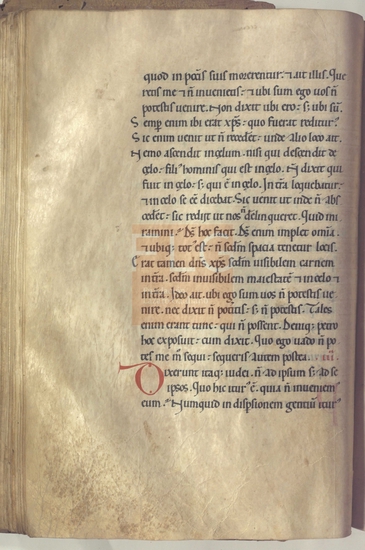 quod in pccis suis morerentur. ⁊ ait illis. Que
retis me ⁊ n̄ invenietis: ⁊ ubi sum ego vos n̄
potestis venire. Non dixit ubi ero: s; ubi sū.
Semp̄ enim ibi erat xp̄s: quo fuerat rediturus.
Sic enim venit ut n̄ recedet: unde alio loco ait.
Nemo ascendit in celum. nisi qui descendit de
celo: fili⁹ hominis qui est in celo. N dixit qui
fuit in celo: s; qui ē in celo. In trā loquebatur:
⁊ in celo se ēē dicebat. Sic venit ut inde n̄ abs
cedet: sic rediit ut nos n̄ delinqueret. Quid mi
ramini? Ds̄ hoc facit. Ds̄ enim implet omīa.
⁊ ubiq; tot⁹ est: n̄ scdm̄ spacia tenetur locis.
Erat tamen dn̄s xp̄s scdm̄ visibilem carnem
in trā. scdm̄ invisibilem maiestatē ⁊ in celo ⁊
in trā. Ideo ait. ubi ego sum vos n̄ potestis ve
nire. nec dixit n̄ potitis: s; n̄ potestis. Tales
enim erant tunc: qui n̄ possent. Deniq; petro
hoc exposuit: cum dixit. Quo ego vado n̄ po
tes me m̄ sequi: sequeris autem postea.
Dixerunt itaq; iudei. n̄ ad ipsum s; ad se
ipsos. Quo hic itur⁹ ē. quia n̄ inveniem⁹
eum? Numquid in dispsionem gentiū itur⁹